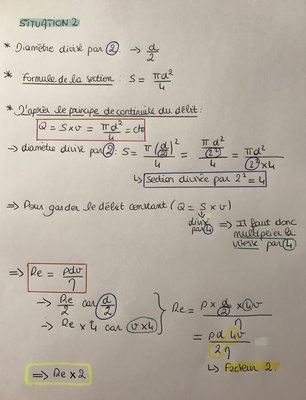 SITUATION 2
* Diamètre divisé par 2 → d/2
* Formule de la section : S = πd²/4
* D'après le principe de continuité du débit :
Q = S × v = πd²/4 = cte
→ diamètre divisé par 2 : S = π(d/2)²/4 = πd²/2²/4 = πd²/2²×4
↳ Section divisée par 2² = 4
⇒ Pour garder le débit constant (Q = S × v)
↓ divisé par 4 ⇒ Il faut donc multiplier la vitesse par 4
⇒ Re = ρdv/η
→ Re/2 car d/2
→ Re × 4 car v×4
} Re = ρ × d/2 × 4v/η
= ρd 4v/2η
↳ Facteur 2.
⇒ Re × 2